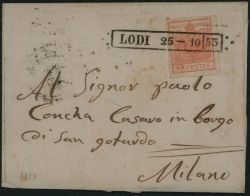 LODI 25-10 53
15 CENTES
Al Signor paolo
Concha Casaro in borgo
di San gotardo
Milano
1853